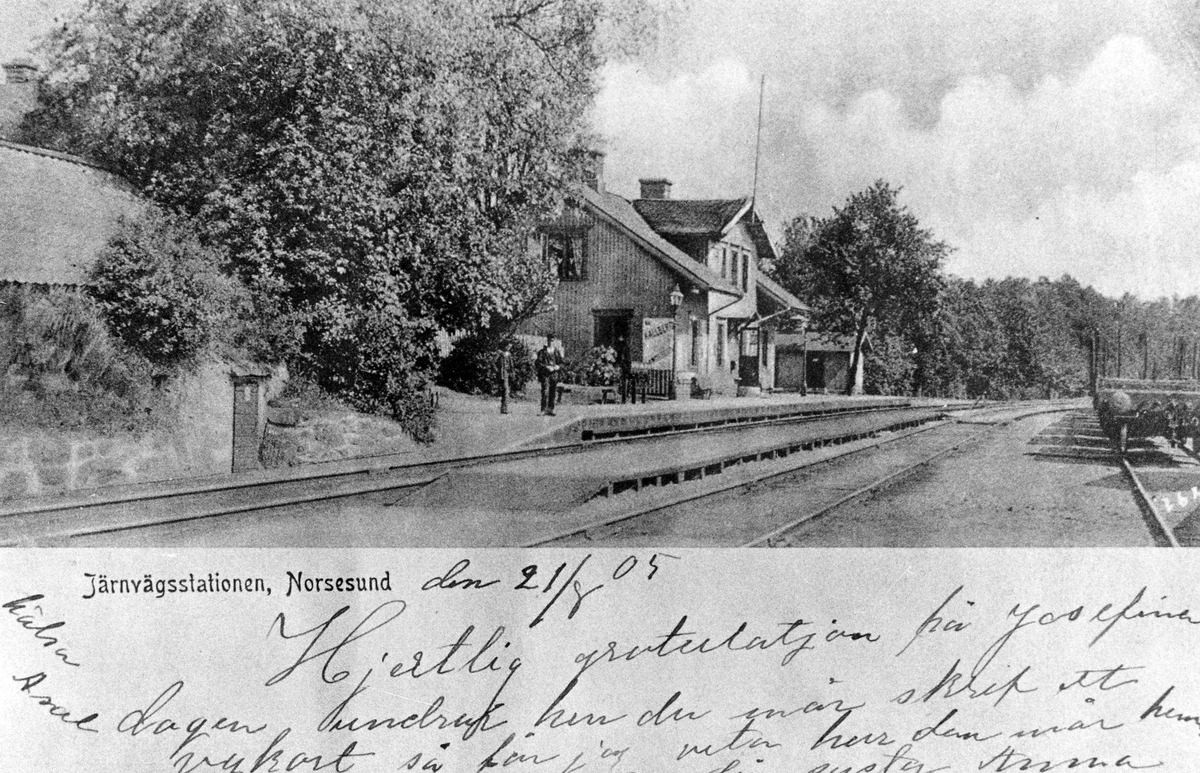 Järnvägsstationen, Norsesund den 21/8 05
Hjertlig gratulatjon på Josefina
dagen, undrar hur du mår skrif ett
vykort så får jag veta hur den mår hem
syster Anna
hälsa
Axel